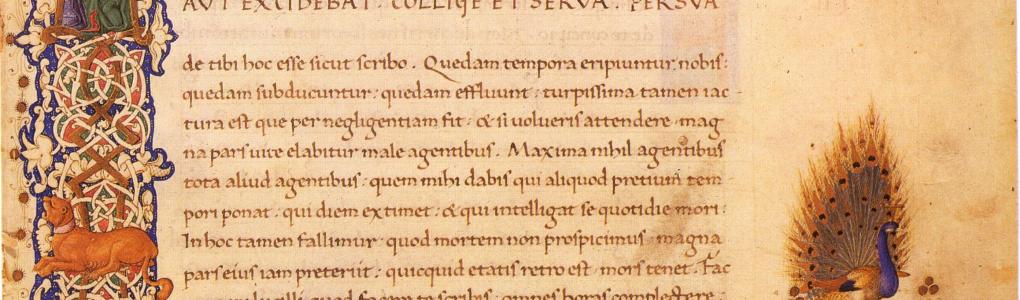 AVT EXCIDEBAT. COLLIGE ET SERVA. PERSVA
de tibi hoc esse sicut scribo. Quedam tempora eripiuntur nobis:
quedam subducuntur: quedam effluunt: turpissima tamen iac-
tura est que per negligentiam fit: & si volueris attendere mag
na pars vite elabitur male agentibus. Maxima nihil agentibus
tota aliud agentibus: quem mihi dabis qui aliquod pretium tem
pori ponat: qui diem extimet: & qui intelligat se quotidie mori:
In hoc tamen fallimur: quod mortem non prospicimus: magna
pars eius iam preteriit: quicquid etatis retro est mors tenet. Fac
lucilli quod facere te scribis: omnes horas complectere.